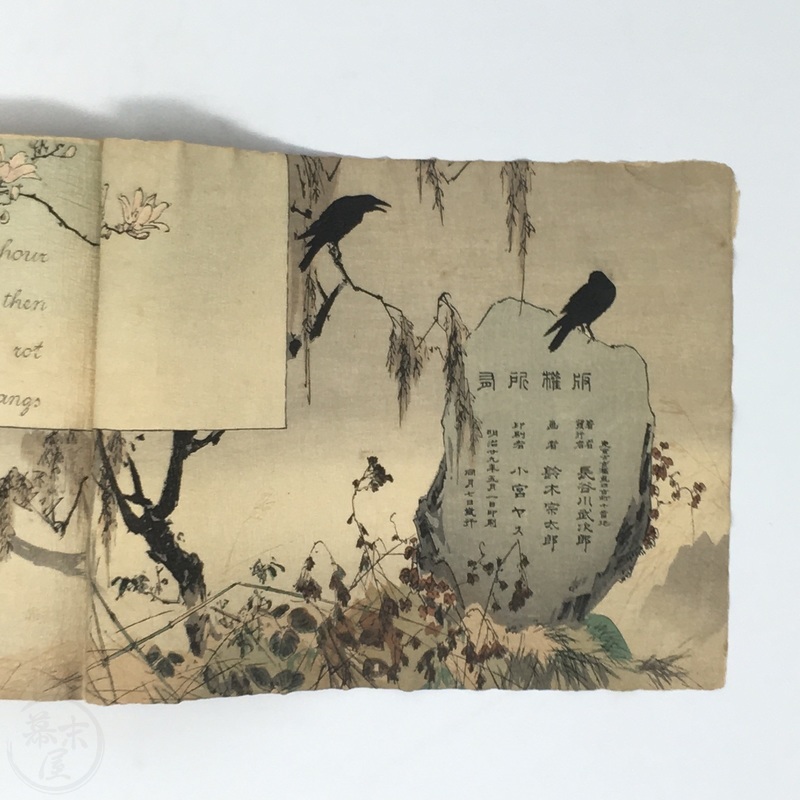 hour
then
rot
angs
版權所有
東京市京橋區日吉町十番地
著者
發行者 長谷川武次郎
畫者 鈴木宗太郎
印刷者 小宮ヤス
明治廿九年五月一日印刷
同月七日發行
幕末屋